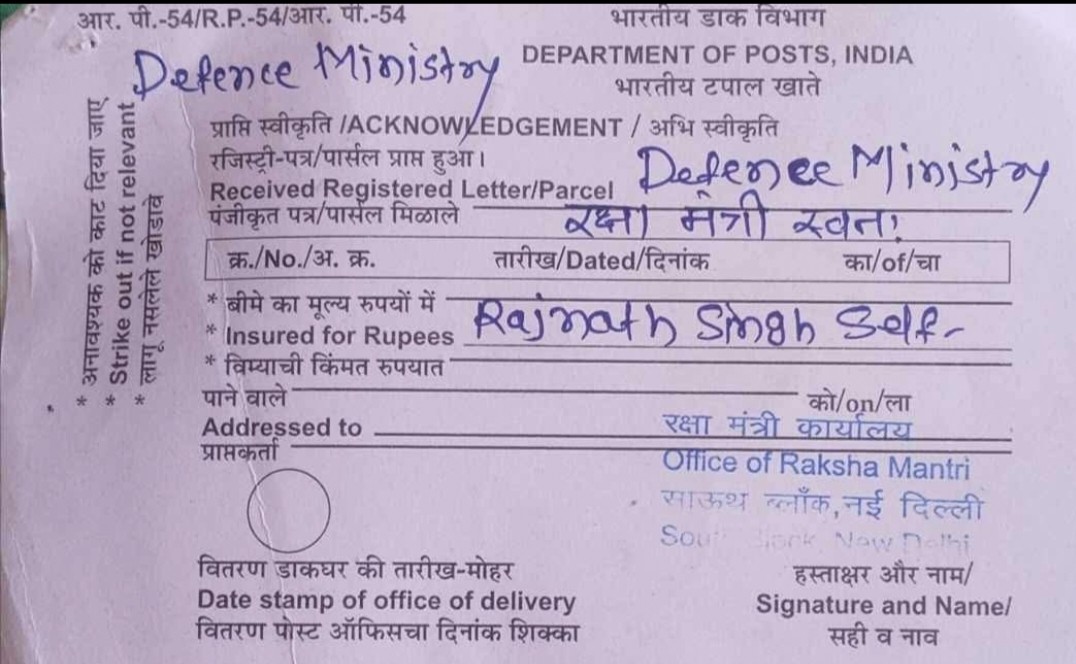 आर. पी.-54/R.P.-54/आर. पी.-54
भारतीय डाक विभाग
Defence Ministry
DEPARTMENT OF POSTS, INDIA
भारतीय टपाल खाते
* अनावश्यक को काट दिया जाए
* Strike out if not relevant
* लागू नसलेले खोडावे
प्राप्ति स्वीकृति /ACKNOWLEDGEMENT / अभि स्वीकृति
रजिस्ट्री-पत्र/पार्सल प्राप्त हुआ।
Received Registered Letter/Parcel Defence Ministry
पंजीकृत पत्र/पार्सल मिळाले रक्षा मंत्री
क्र./No./अ. क्र. तारीख/Dated/दिनांक का/of/चा
* बीमे का मूल्य रुपयों में
* Insured for Rupees Rajnath Singh Self-
* विम्याची किंमत रुपयात
पाने वाले को/on/ला
Addressed to रक्षा मंत्री कार्यालय
प्राप्तकर्ता
Office of Raksha Mantri
साऊथ ब्लॉक, नई दिल्ली
New Delhi
वितरण डाकघर की तारीख-मोहर
Date stamp of office of delivery
वितरण पोस्ट ऑफिसचा दिनांक शिक्का
हस्ताक्षर और नाम/
Signature and Name/
सही व नाव